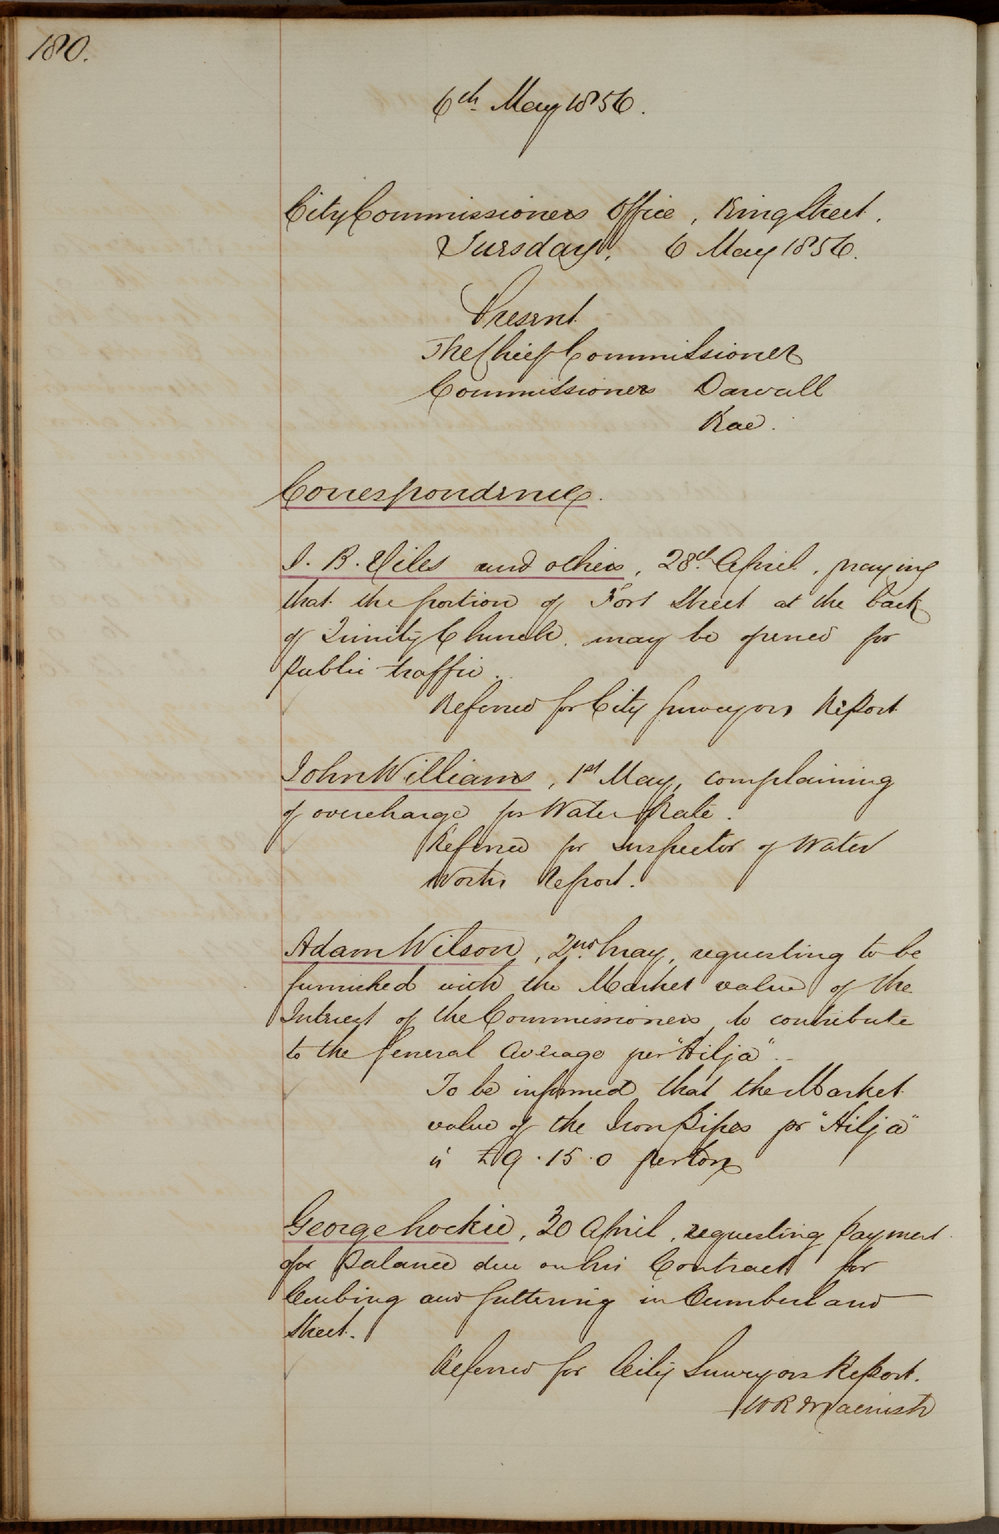 180.
6th May 1856.
City Commissioners Office, King Street.
Tuesday, 6 May 1856.
Present
The Chief Commissioner
Commissioners Darvall
Rae.
Correspondence.
J. B. Giles and others, 28th April, praying
that the portion of Fort Street at the back
of Trinity Church may be opened for
public traffic.
Referred for City Surveyors Report
John Williams, 1st May, complaining
of overcharge for Water Rate.
Referred for Inspector of Water
Works Report.
Adam Wilson, 2nd May, requesting to be
furnished with the Market value of the
Interest of the Commissioners to contribute
to the General Average per "Hilja".
To be informed that the Market
value of the Iron Pipes pr "Hilja"
is £9.15.0 per ton
George Lockie, 30 April, requesting payment
for Balance due on his Contract for
Curbing and guttering in Cumberland
Street.
Referred for City Surveyors Report.